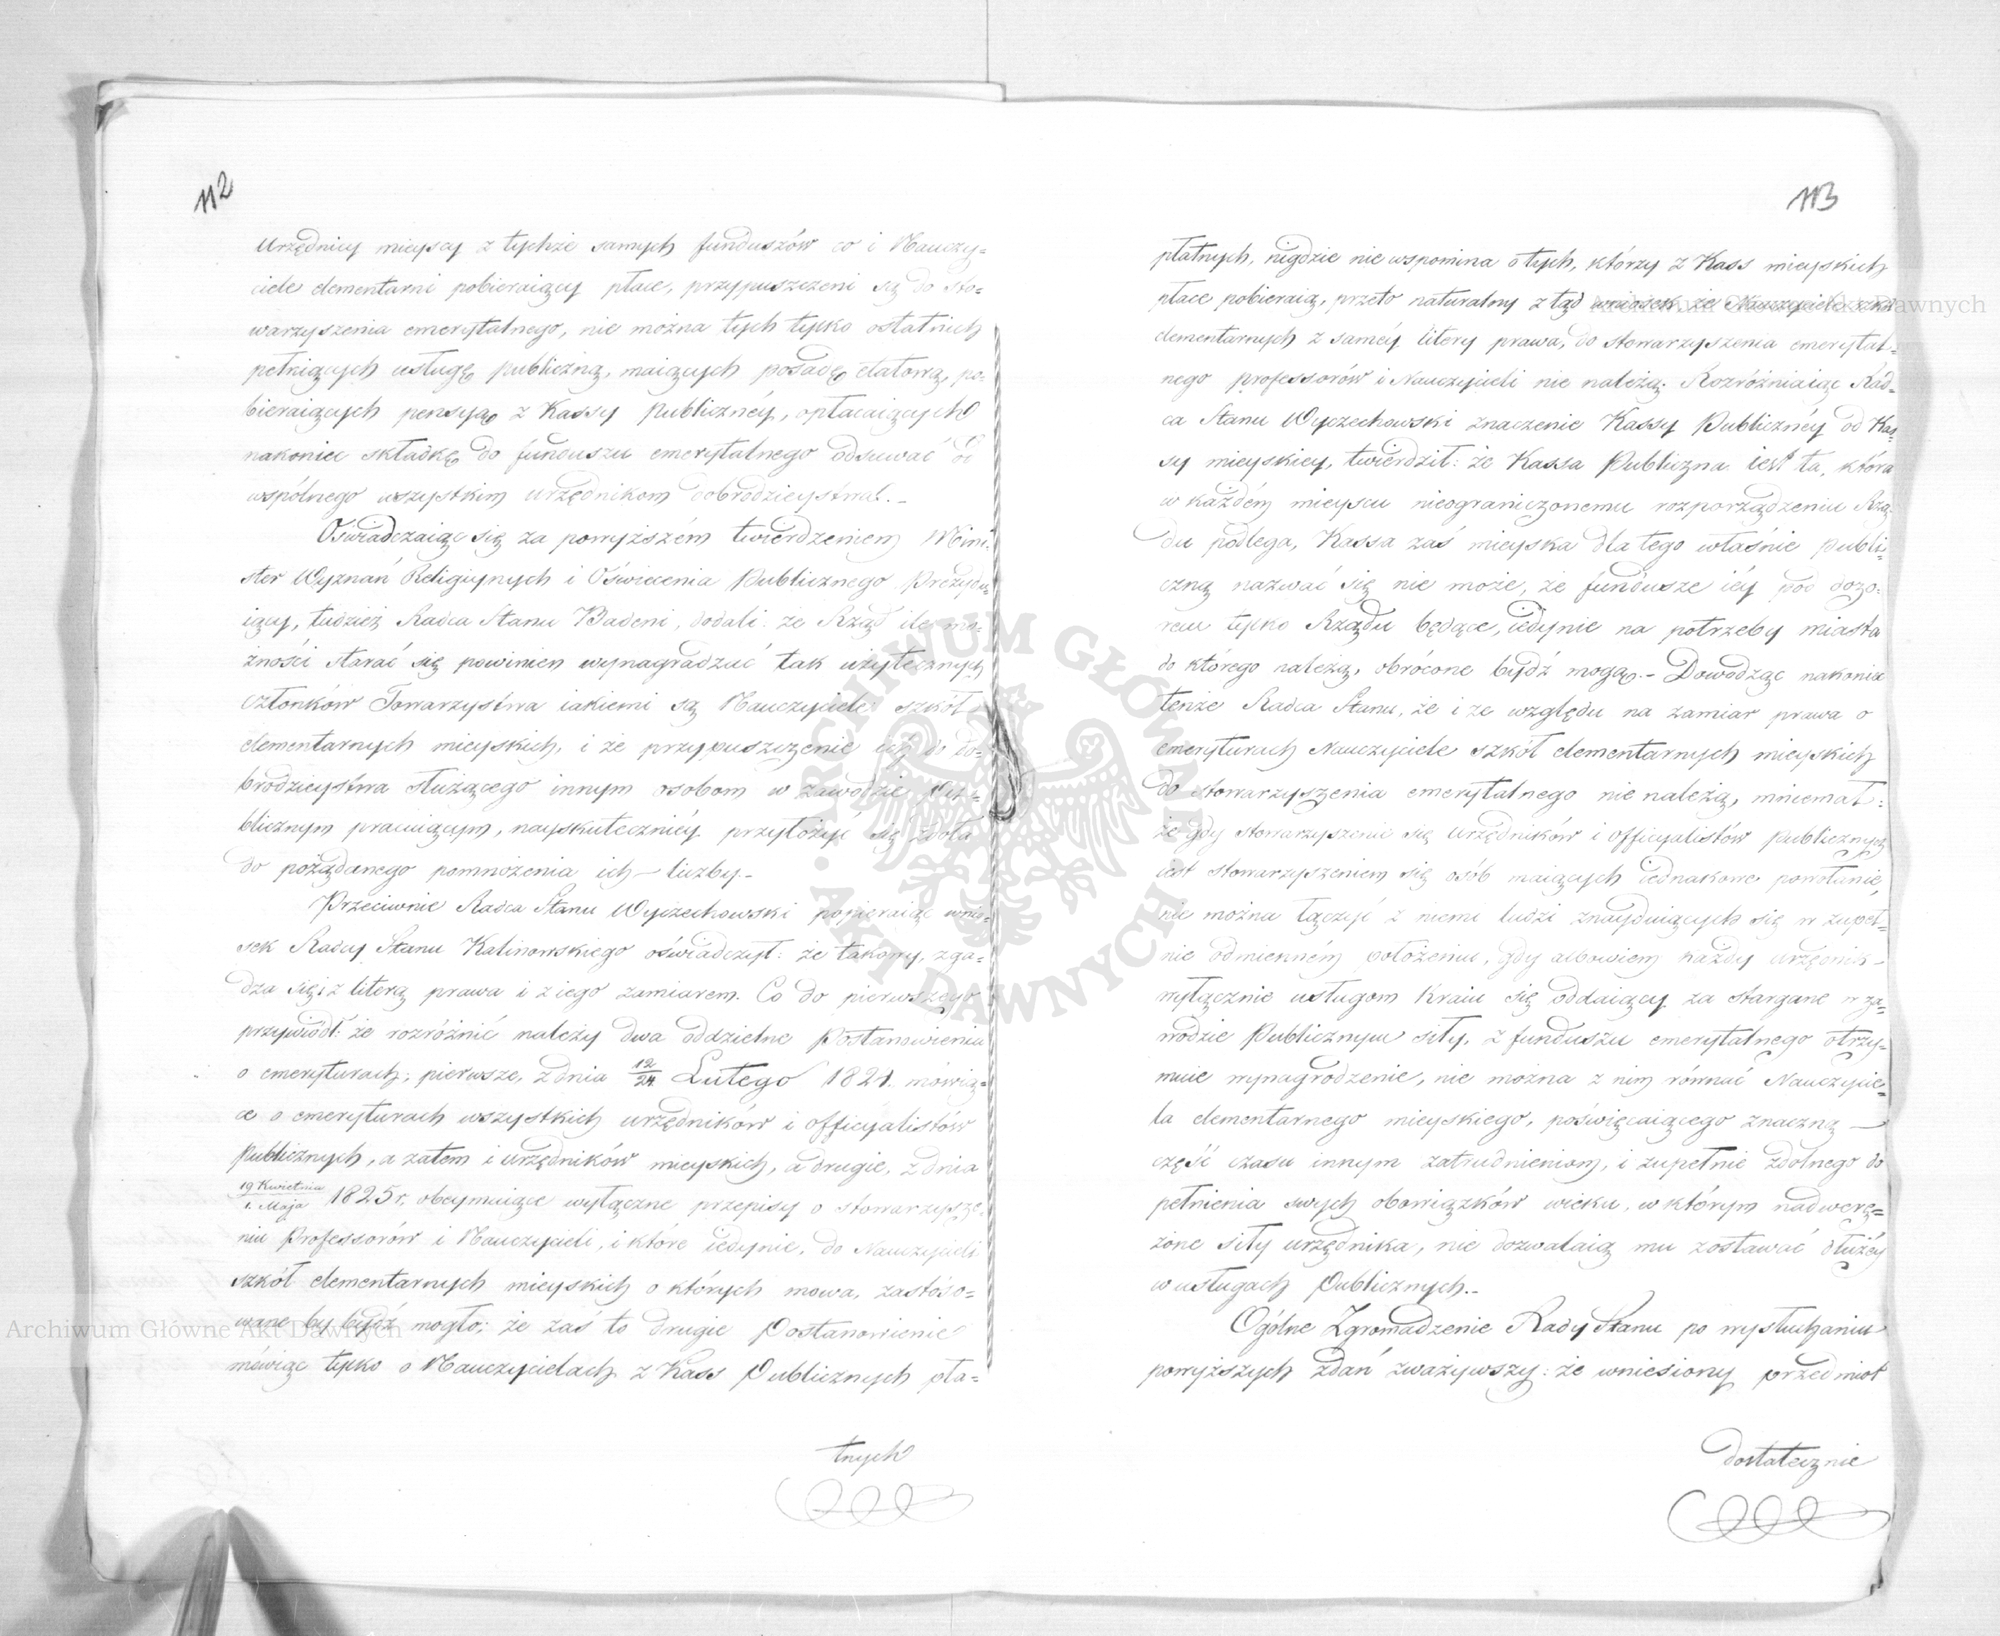 112
urzędnicy mieyscy z tychże samych funduszów co i Nauczy=
ciele elementarni pobieraiący płace, przypuszczeni są do sto=
warzyszenia emerytalnego, nie można tych tylko ostatnich
pełniących usługę publiczną, maiących posadę etatową, po=
bieraiących pensyą z Kassy Publicznéy, opłacaiących
nakoniec składkę do funduszu emerytalnego odsuwać od
wspólnego wszystkim urzędnikom dobrodzieystwa.
Oświadczaiąc się za powyższém twierdzeniem Mini=
ster Wyznań Religiynych i Oświecenia Publicznego Prezydu=
iący, tudzież Radca Stanu Badeni, dodali: że Rząd ile mo=
żności starać się powinien wynagradzać tak użytecznych
członków Towarzystwa iakiemi są Nauczyciele szkół
elementarnych mieyskich, i że przypuszczenie ich do do=
brodzieystwa służącego innym osobom w zawodzie Pu=
blicznym pracuiącym, nayskuteczniéy przyłożyć się zdoła
do pożądanego pomnożenia ich liczby.
Przeciwnie Radca Stanu Wyczechowski popieraiąc wnio=
sek Radcy Stanu Kalinowskiego oświadczył: że takowy, zga=
dza się i z literą prawa i z iego zamiarem. Co do pierwszego
przywiódł: że rozróżnić należy dwa oddzielne Postanowienia
o emeryturach; pierwsze, z dnia 12/24 Lutego 1824. mówią=
ce o emeryturach wszystkich urzędników i officyalistów
Publicznych, a zatem i urzędników mieyskich, a drugie, z dnia
19 Kwietnia/1. Maja 1825 r. obeymuiące wyłączne przepisy o stowarzysze=
niu Professorów i Nauczycieli, i które iedynie, do Nauczycieli
szkół elementarnych mieyskich o których mowa, zastoso=
wane by bydź mogło; że zaś to drugie Postanowienie
mówiąc tylko o Nauczycielach z Kass Publicznych pła=
tnych
113
płatnych, nigdzie nie wspomina o tych, którzy z Kass mieyskich
płace pobieraią, przeto naturalny z tąd wniosek, że Nauczyciele szkół
elementarnych z saméy litery prawa, do stowarzyszenia emerytal=
nego professorów i Nauczycieli nie należą; Rozróżniaiąc Rad=
ca Stanu Wyczechowski znaczenie Kassy Publicznéy od Kas=
sy mieyskiey, twierdził: że Kassa Publiczna iest ta, która
w każdém mieyscu nieograniczonemu rozporządzeniu Rzą=
du podlega, Kassa zaś mieyska dla tego właśnie publi=
czną nazwać się nie może, że fundusze iéy pod dozo=
rem tylko Rządu będące, iedynie na potrzeby miasta
do którego należą, obrócone bydź mogą.- Dowodząc nakoniec
tenże Radca Stanu, że i ze względu na zamiar prawa o
emeryturach Nauczyciele szkół elementarnych mieyskich
do stowarzyszenia emerytalnego nie należą, mniemał:
że gdy stowarzyszenie się urzędników i officyalistów publicznych
iest stowarzyszeniem się osób maiących iednakowe powołanie,
nie można łączyć z niemi ludzi znayduiących się w zupeł=
nie odmienném położeniu, gdy albowiem każdy urzędnik
wyłącznie usługom Kraiu się oddaiący za stargane w za=
wodzie Publicznym siły, z funduszu emerytalnego otrzy=
muie wynagrodzenie, nie można z nim równać Nauczycie=
la elementarnego mieyskiego, poświęcaiącego znaczną
część czasu innym zatrudnieniom, i zupełnie zdolnego do
pełnienia swych obowiązków wieku, w którym nadwerę=
żone siły urzędnika, nie dozwalaią mu zostawać dłużéy
w usługach Publicznych.
Ogólne Zgromadzenie Rady Stanu po wysłuchaniu
powyższych zdań zważywszy: że wniesiony przedmiot
dostatecznie
ARCHIWUM GŁÓWNE AKT DAWNYCH
Archiwum Główne Akt Dawnych
Archiwum Główne Akt Dawnych